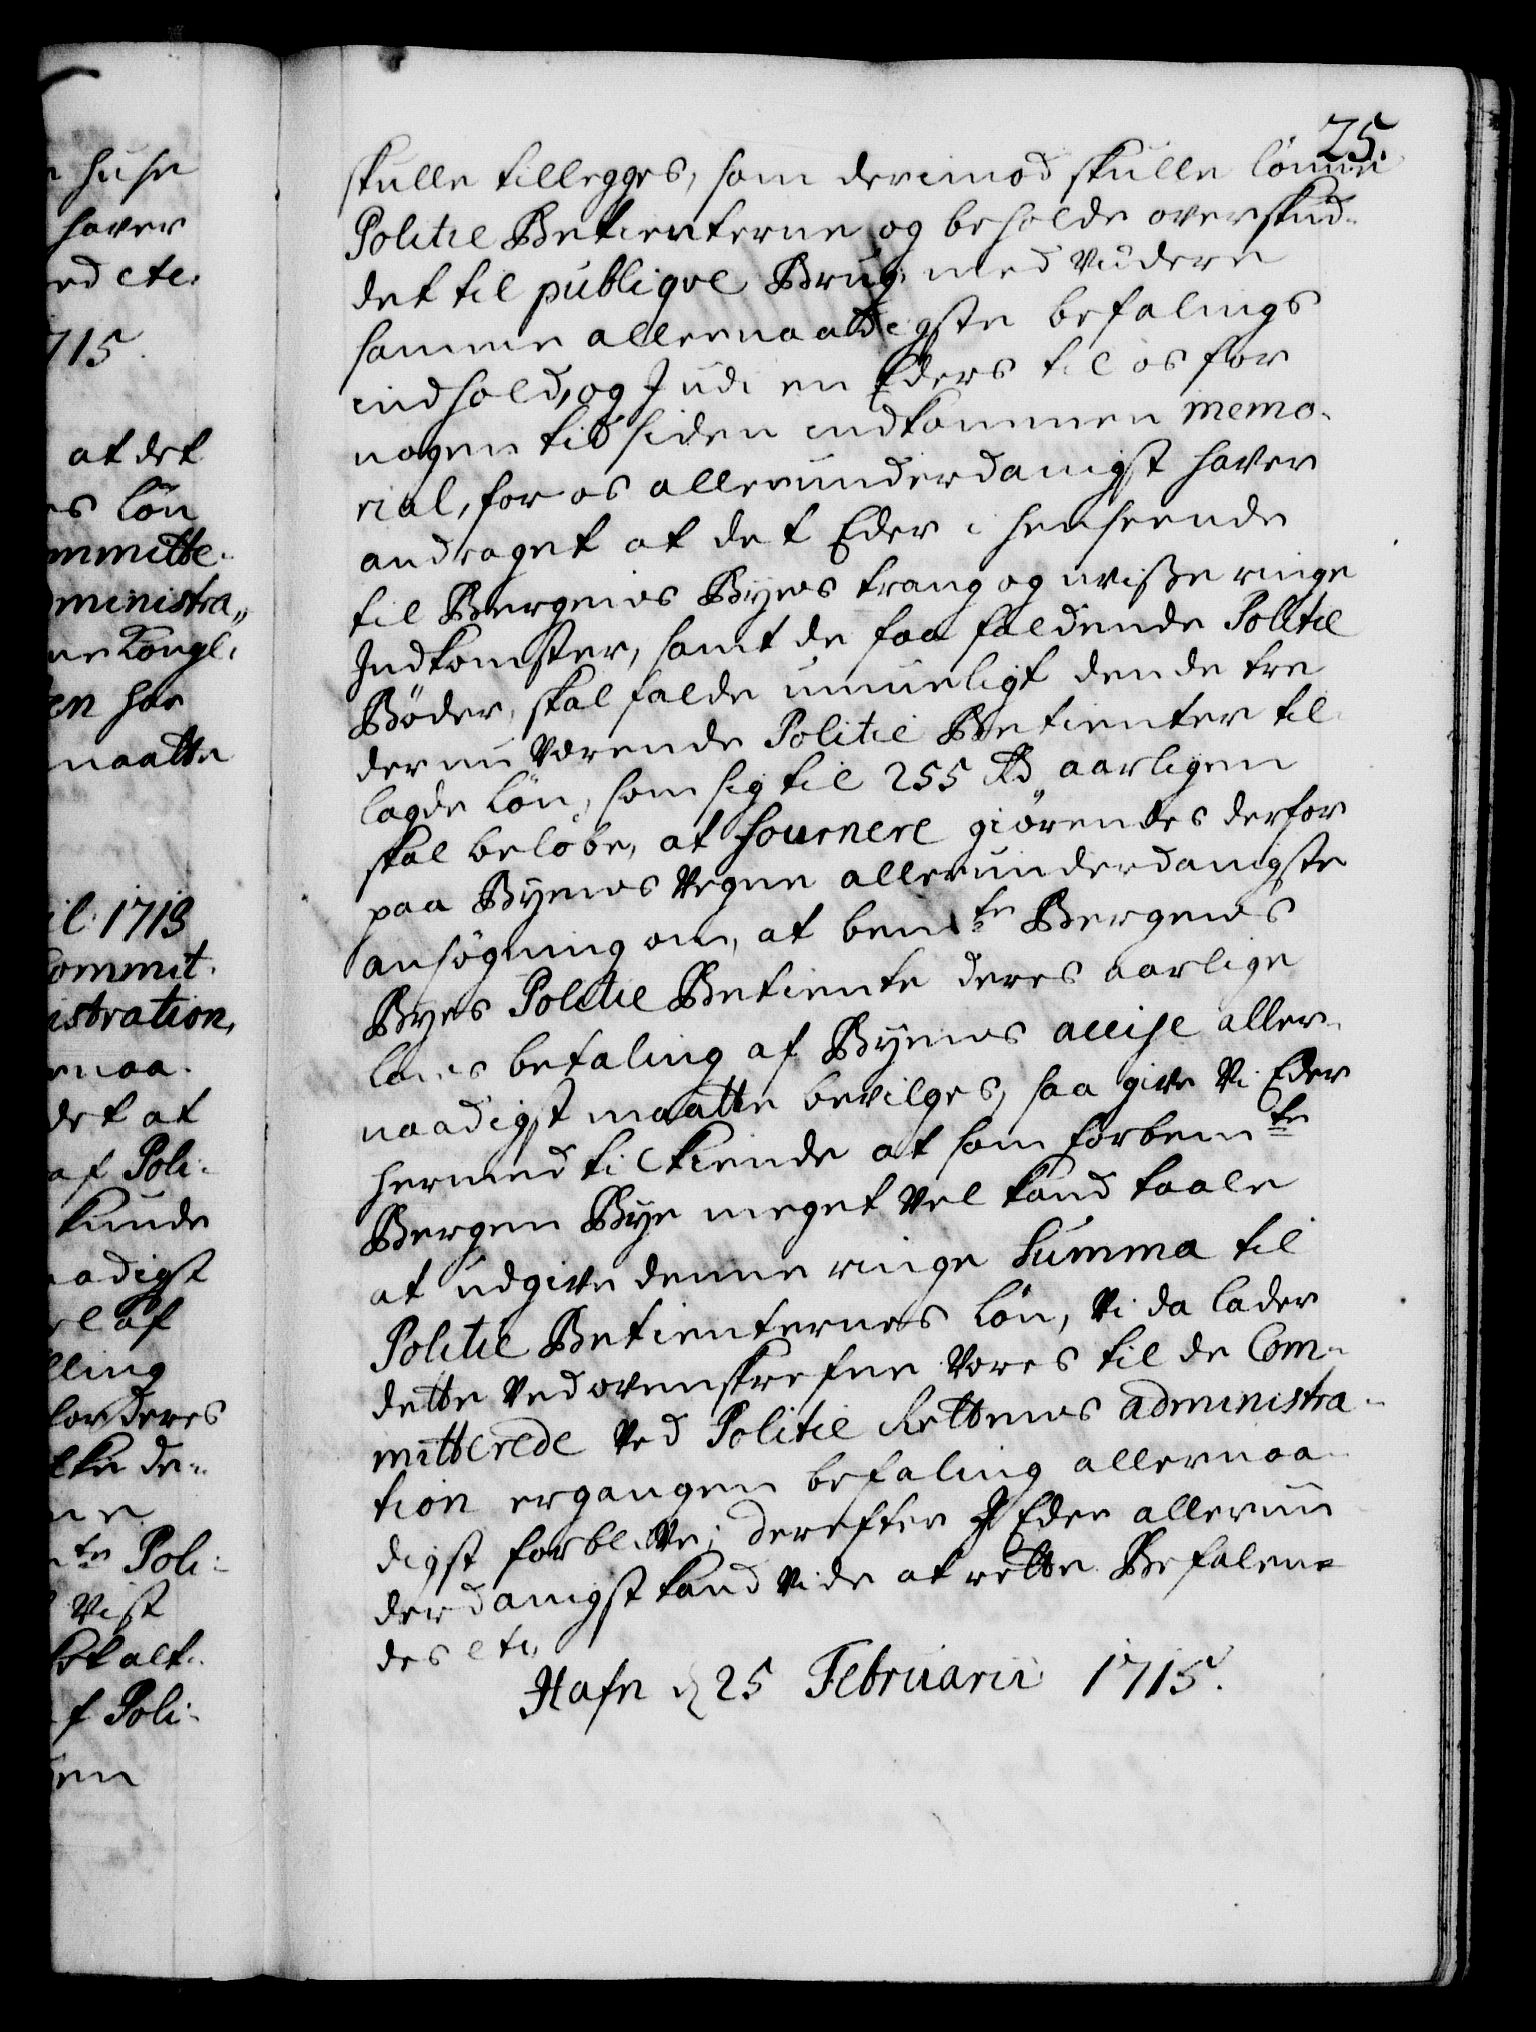 25.
skulle tillegges, som derimod skulle lönne
Politie Betienterne og beholde overskud-
det til publique Brug, med videre
samme allernaadigste befalings
indhold, og I udi en Eders til os for
nogen tid siden indkommen memo-
rial, for os allerunderdanigst haver
andraget at det Eder i henseende
til Bergens Byes trang og uvisse ringe
Indkomster, samt de faa faldende Politie
Böder, skal falde umueligt den de tre
der nu værende Politie Betienter til-
lagde Lön, som sig til 255 Rd aarligen
skal belöbe, at fournere giörendes derfor
paa Byens Vegne allerunderdanigste
ansögning om, at bemte Bergens
Byes Politie Betiente deres aarlige
löns betaling af Byens accise aller-
naadigst maatte bevilges, saa give Vi Eder
hermed til kiende at som forbemte
Bergen Bye meget vel kand taale
at udgive denne ringe Summa til
Politie Betienternes Lön, Vi da lader
dette ved ovenskrefne Vores til de Com-
mitterede ved Politie Rettens administra-
tion ergangen befaling allernaa-
digst forblive; derefter I Eder allerun
derdanigst kand vide at rette. Befalen-
des etc.
Hafn d 25 Februarii 1715.
huse
haver
ed etc.
715.
at det
es lön
ommitte-
ministra,,
ne Kongl.
en har
maatte
il 1713
Commit.
istration,
rnaa-
det at
af Poli-
kunde
aadigst
el af
lling
for deres
ne
te Poli-
Vist
af Poli-